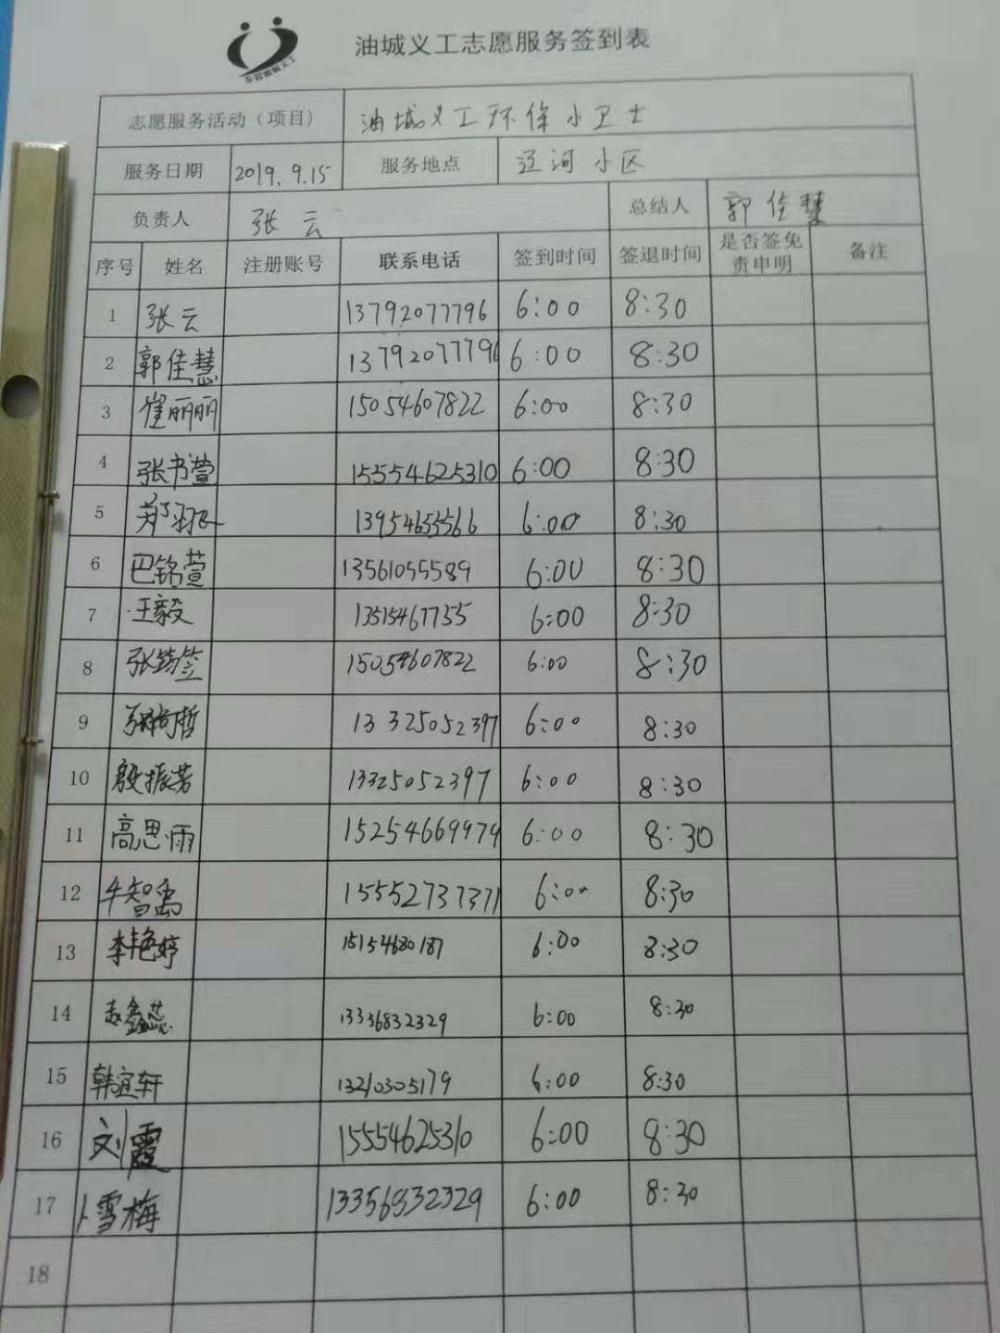 油城义工志愿服务签到表
志愿服务活动（项目） 油城义工环保小卫士
服务日期 2019.9.15 服务地点 辽河小区
负责人 张云 总结人 郭佳慧
序号 姓名 注册账号 联系电话 签到时间 签退时间 是否签免责申明 备注
1 张云 13792077796 6:00 8:30
2 郭佳慧 13792077796 6:00 8:30
3 崔丽丽 15054607822 6:00 8:30
4 张书萱 15554625310 6:00 8:30
5 6:00 8:30
6 巴铭萱 13561055589 6:00 8:30
7 王毅 13515467755 6:00 8:30
8 15054607822 6:00 8:30
9 13325052397 6:00 8:30
10 殷振芳 13325052397 6:00 8:30
11 高思雨 15254669979 6:00 8:30
12 牛智禹 15552737371 6:00 8:30
13 李艳婷 15154680187 6:00 8:30
14 赵鑫蕊 13356832329 6:00 8:30
15 韩宜轩 13210305179 6:00 8:30
16 刘霞 15554625310 6:00 8:30
17 雪梅 13356832329 6:00 8:30
18